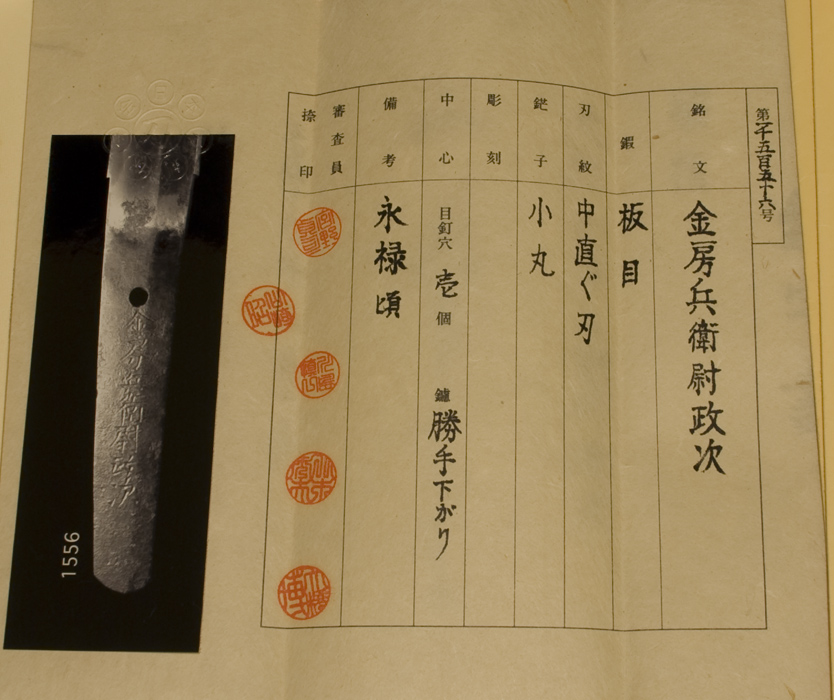 第一千五百五十六号
銘文 金房兵衛尉政次
鍜 板目
刃紋 中直ぐ刃
鋩子 小丸
彫刻
中心 目釘穴 壱個 鑢 勝手下がり
備考 永禄頃
審査員
捺印
金房兵衛尉政次
1556